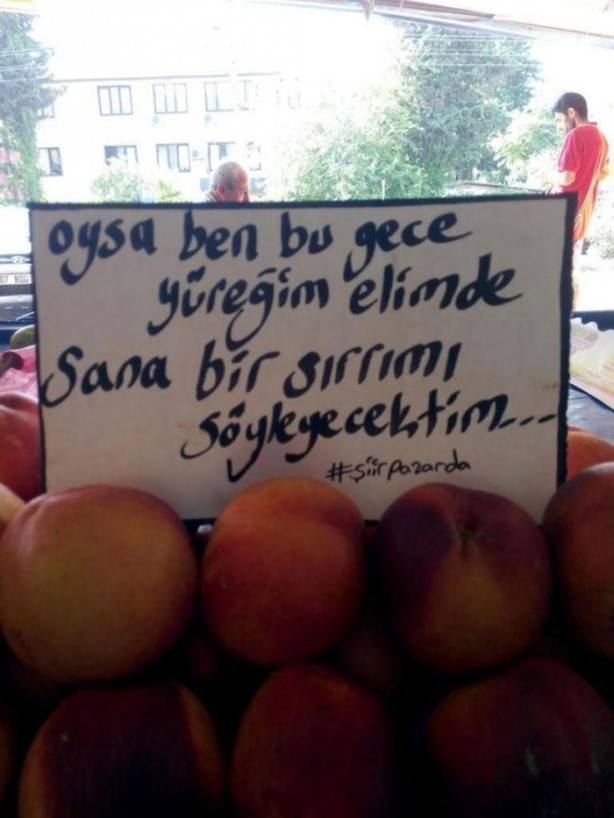 oysa ben bu gece
yüreğim elimde
sana bir sırrımı
söyleyecektim...
#şiirpazarda